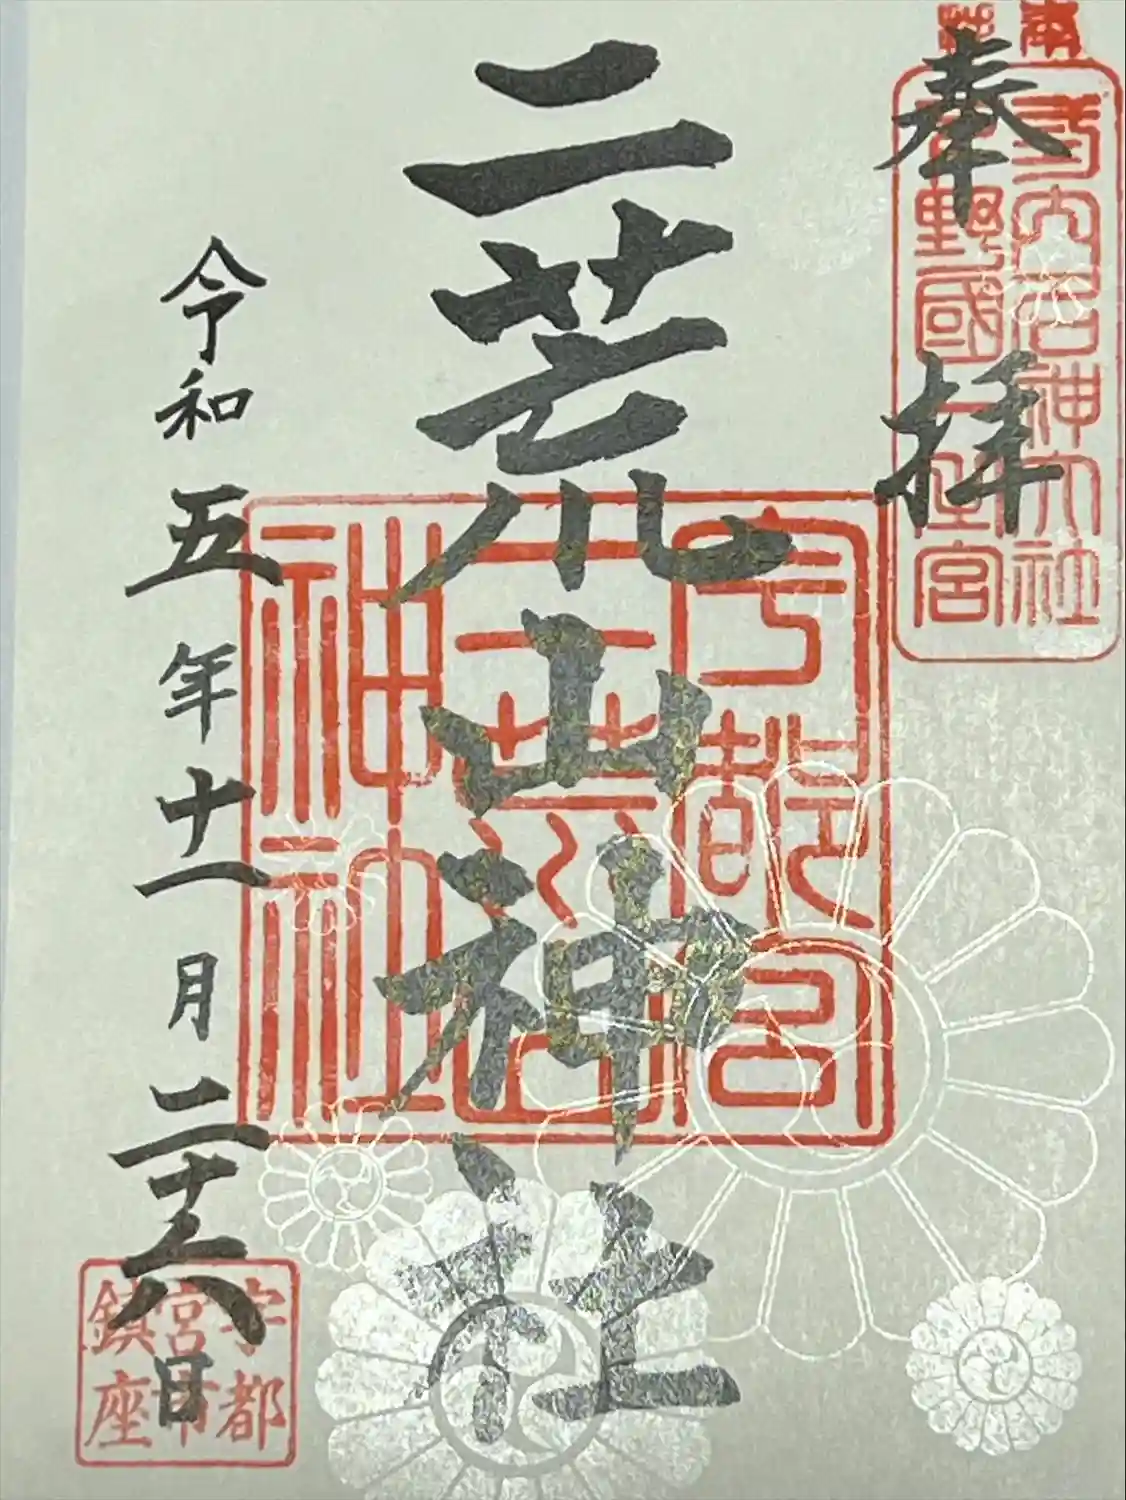 奉拝
式内名神大社
下野國一之宮
二荒山神社
宇都宮
二荒山
神社
令和五年十一月二十六日
宇都
宮市
鎮座